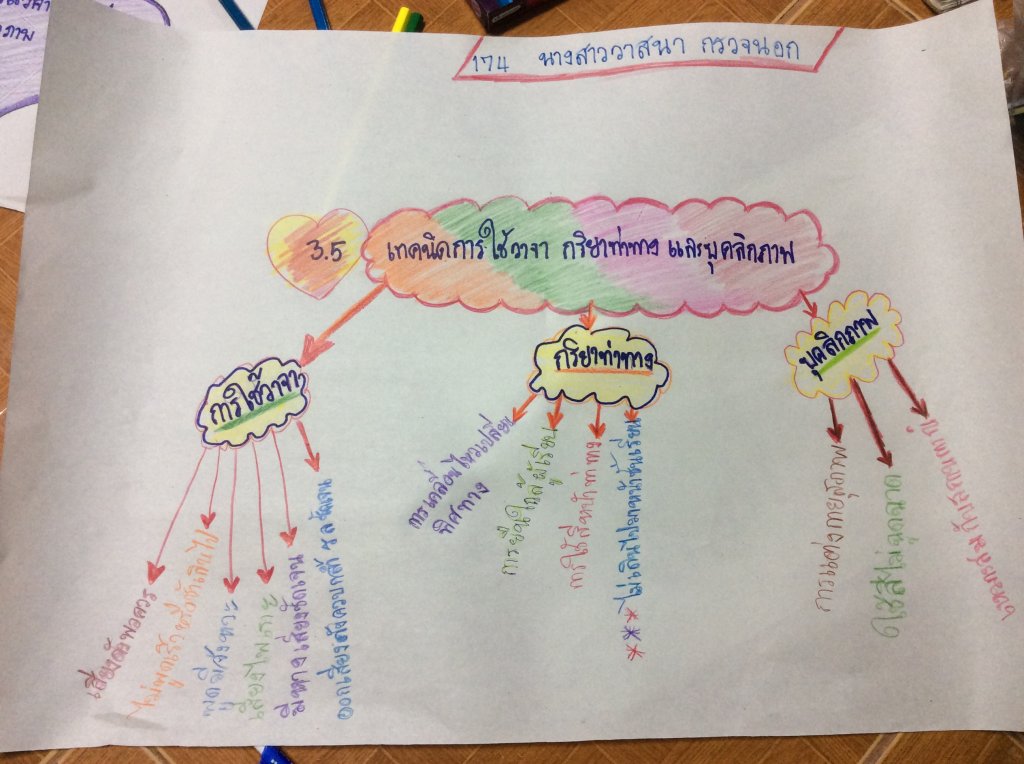 174 นางสาววาสนา กรวจนอก
3.5 เทคนิคการใช้วาจา กริยาท่าทาง และบุคลิกภาพ
การใช้วาจา
เสียงดังพอควร
ไม่พูดเร็วหรือช้าเกินไป
พูดมีจังหวะ
เสียงไพเราะ
มีหางเสียงชัดเจน
ออกเสียงอักควบกล้ำ ร ล ชัดเจน
กริยาท่าทาง
การเคลื่อนไหวเปลี่ยน
ทิศทาง
การยืนใกล้ผู้เรียน
การใช้สีหน้าท่าทาง
*** ไม่เดินไปมาหน้าชั้นเรียน
บุคลิกภาพ
การแต่งกายสุภาพ
ใช้สีไม่ฉูดฉาด
กับสภาพ